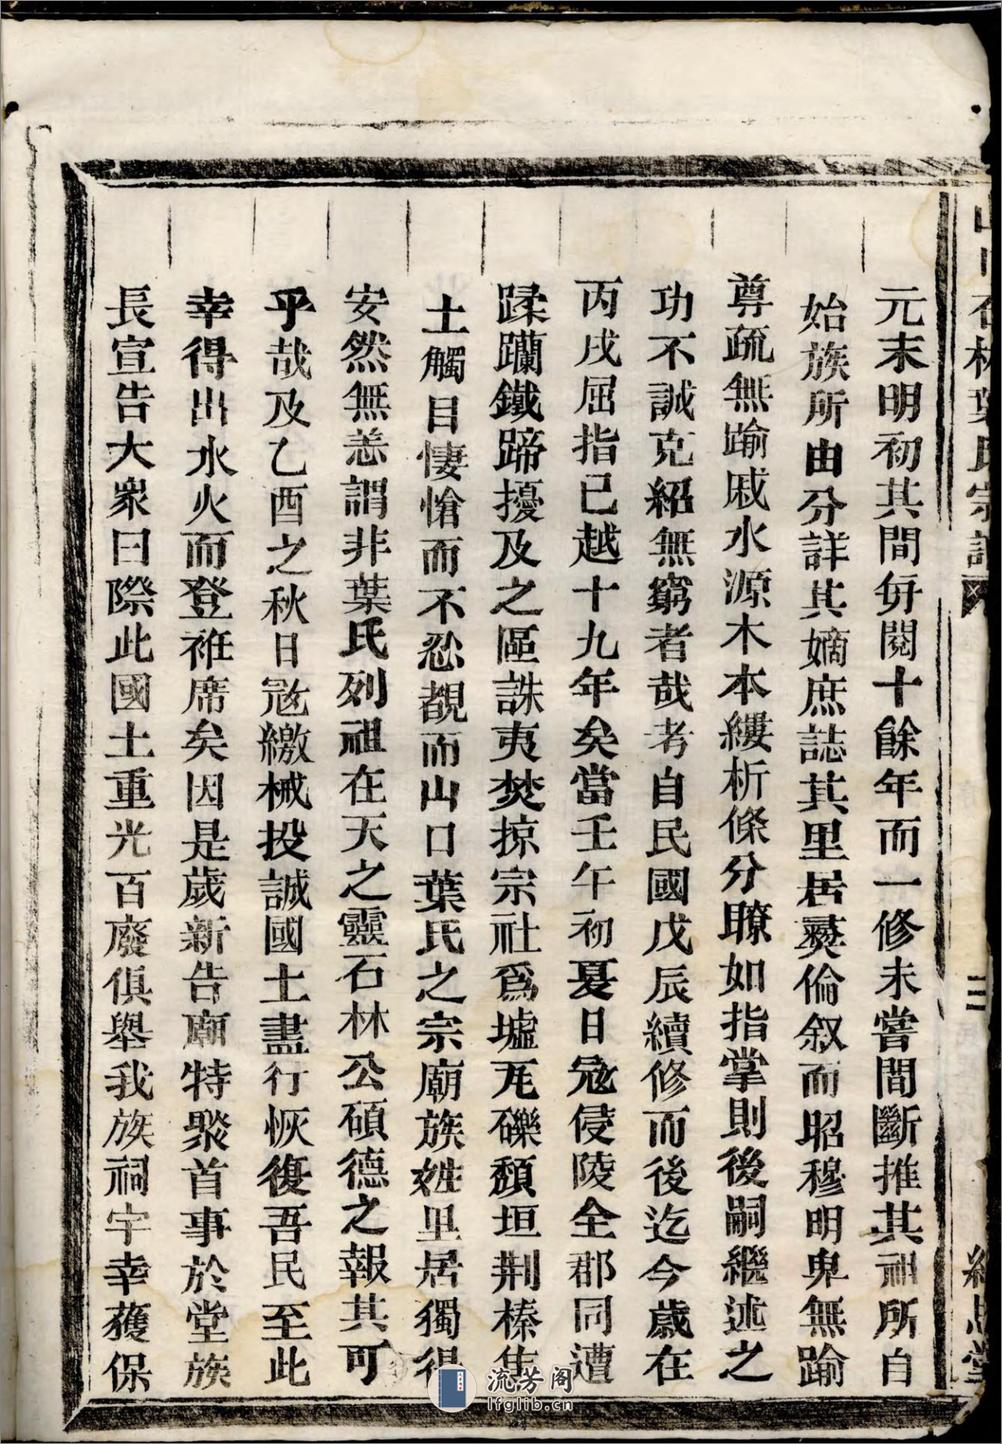 石林葉氏宗譜
三
元末明初其間每閱十餘年而一修未嘗間斷推其祖所自
始族所由分詳其嫡庶誌其里居彝倫叙而昭穆明卑無踰
尊疏無踰戚水源木本縷析條分瞭如指掌則後嗣繼述之
功不誠克紹無窮者哉考自民國戊辰續修而後迄今歲在
丙戌屈指已越十九年矣當壬午初夏日寇侵陵全郡同遭
蹂躪鐵蹄擾及之區誅夷焚掠宗社爲墟瓦礫頹垣荆榛隻
土觸目悽愴而不忍覩而山口葉氏之宗廟族姓里居獨得
安然無恙謂非葉氏列祖在天之靈石林公碩德之報其可
乎哉及乙酉之秋日寇繳械投誠國土盡行恢復吾民至此
幸得出水火而登袵席矣因是歲新告廟特聚首事於堂族
長宣告大衆曰際此國土重光百廢俱舉我族祠宇幸獲保
流芳阁
lfglib.cn